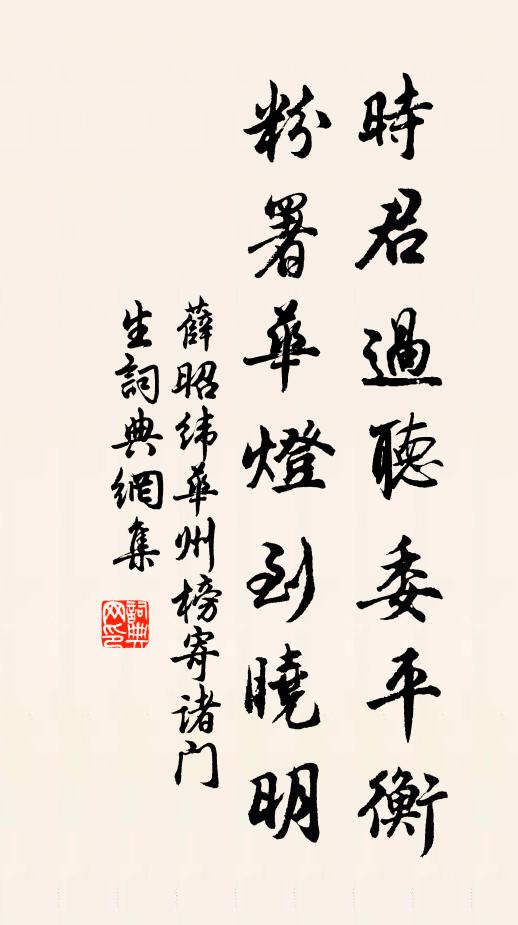 時君過聽委平衡
粉署華燈到曉明
薛昭緯華州榜寄諸門
生詞典網集
詞典
网印